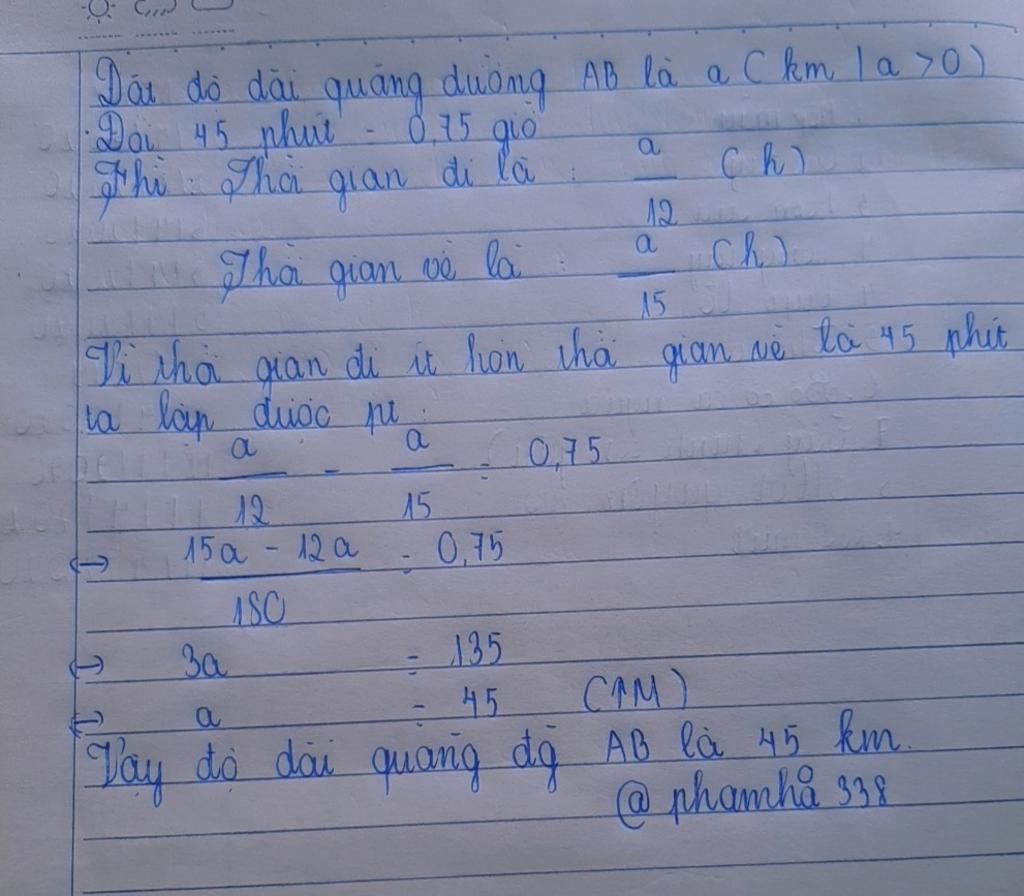 Đặt độ dài quãng đường AB là a (km | a > 0)
Đổi 45 phút = 0,75 giờ
Thì : Thời gian đi là : a/12 (h)
Thời gian về là : a/15 (h)
Vì thời gian đi ít hơn thời gian về là 45 phút
ta lập được pt :
a/12 - a/15 = 0,75
<-> (15a - 12a)/180 = 0,75
<-> 3a = 135
<-> a = 45 (TM)
Vậy độ dài quãng đg AB là 45 km.
@ phamhà 338